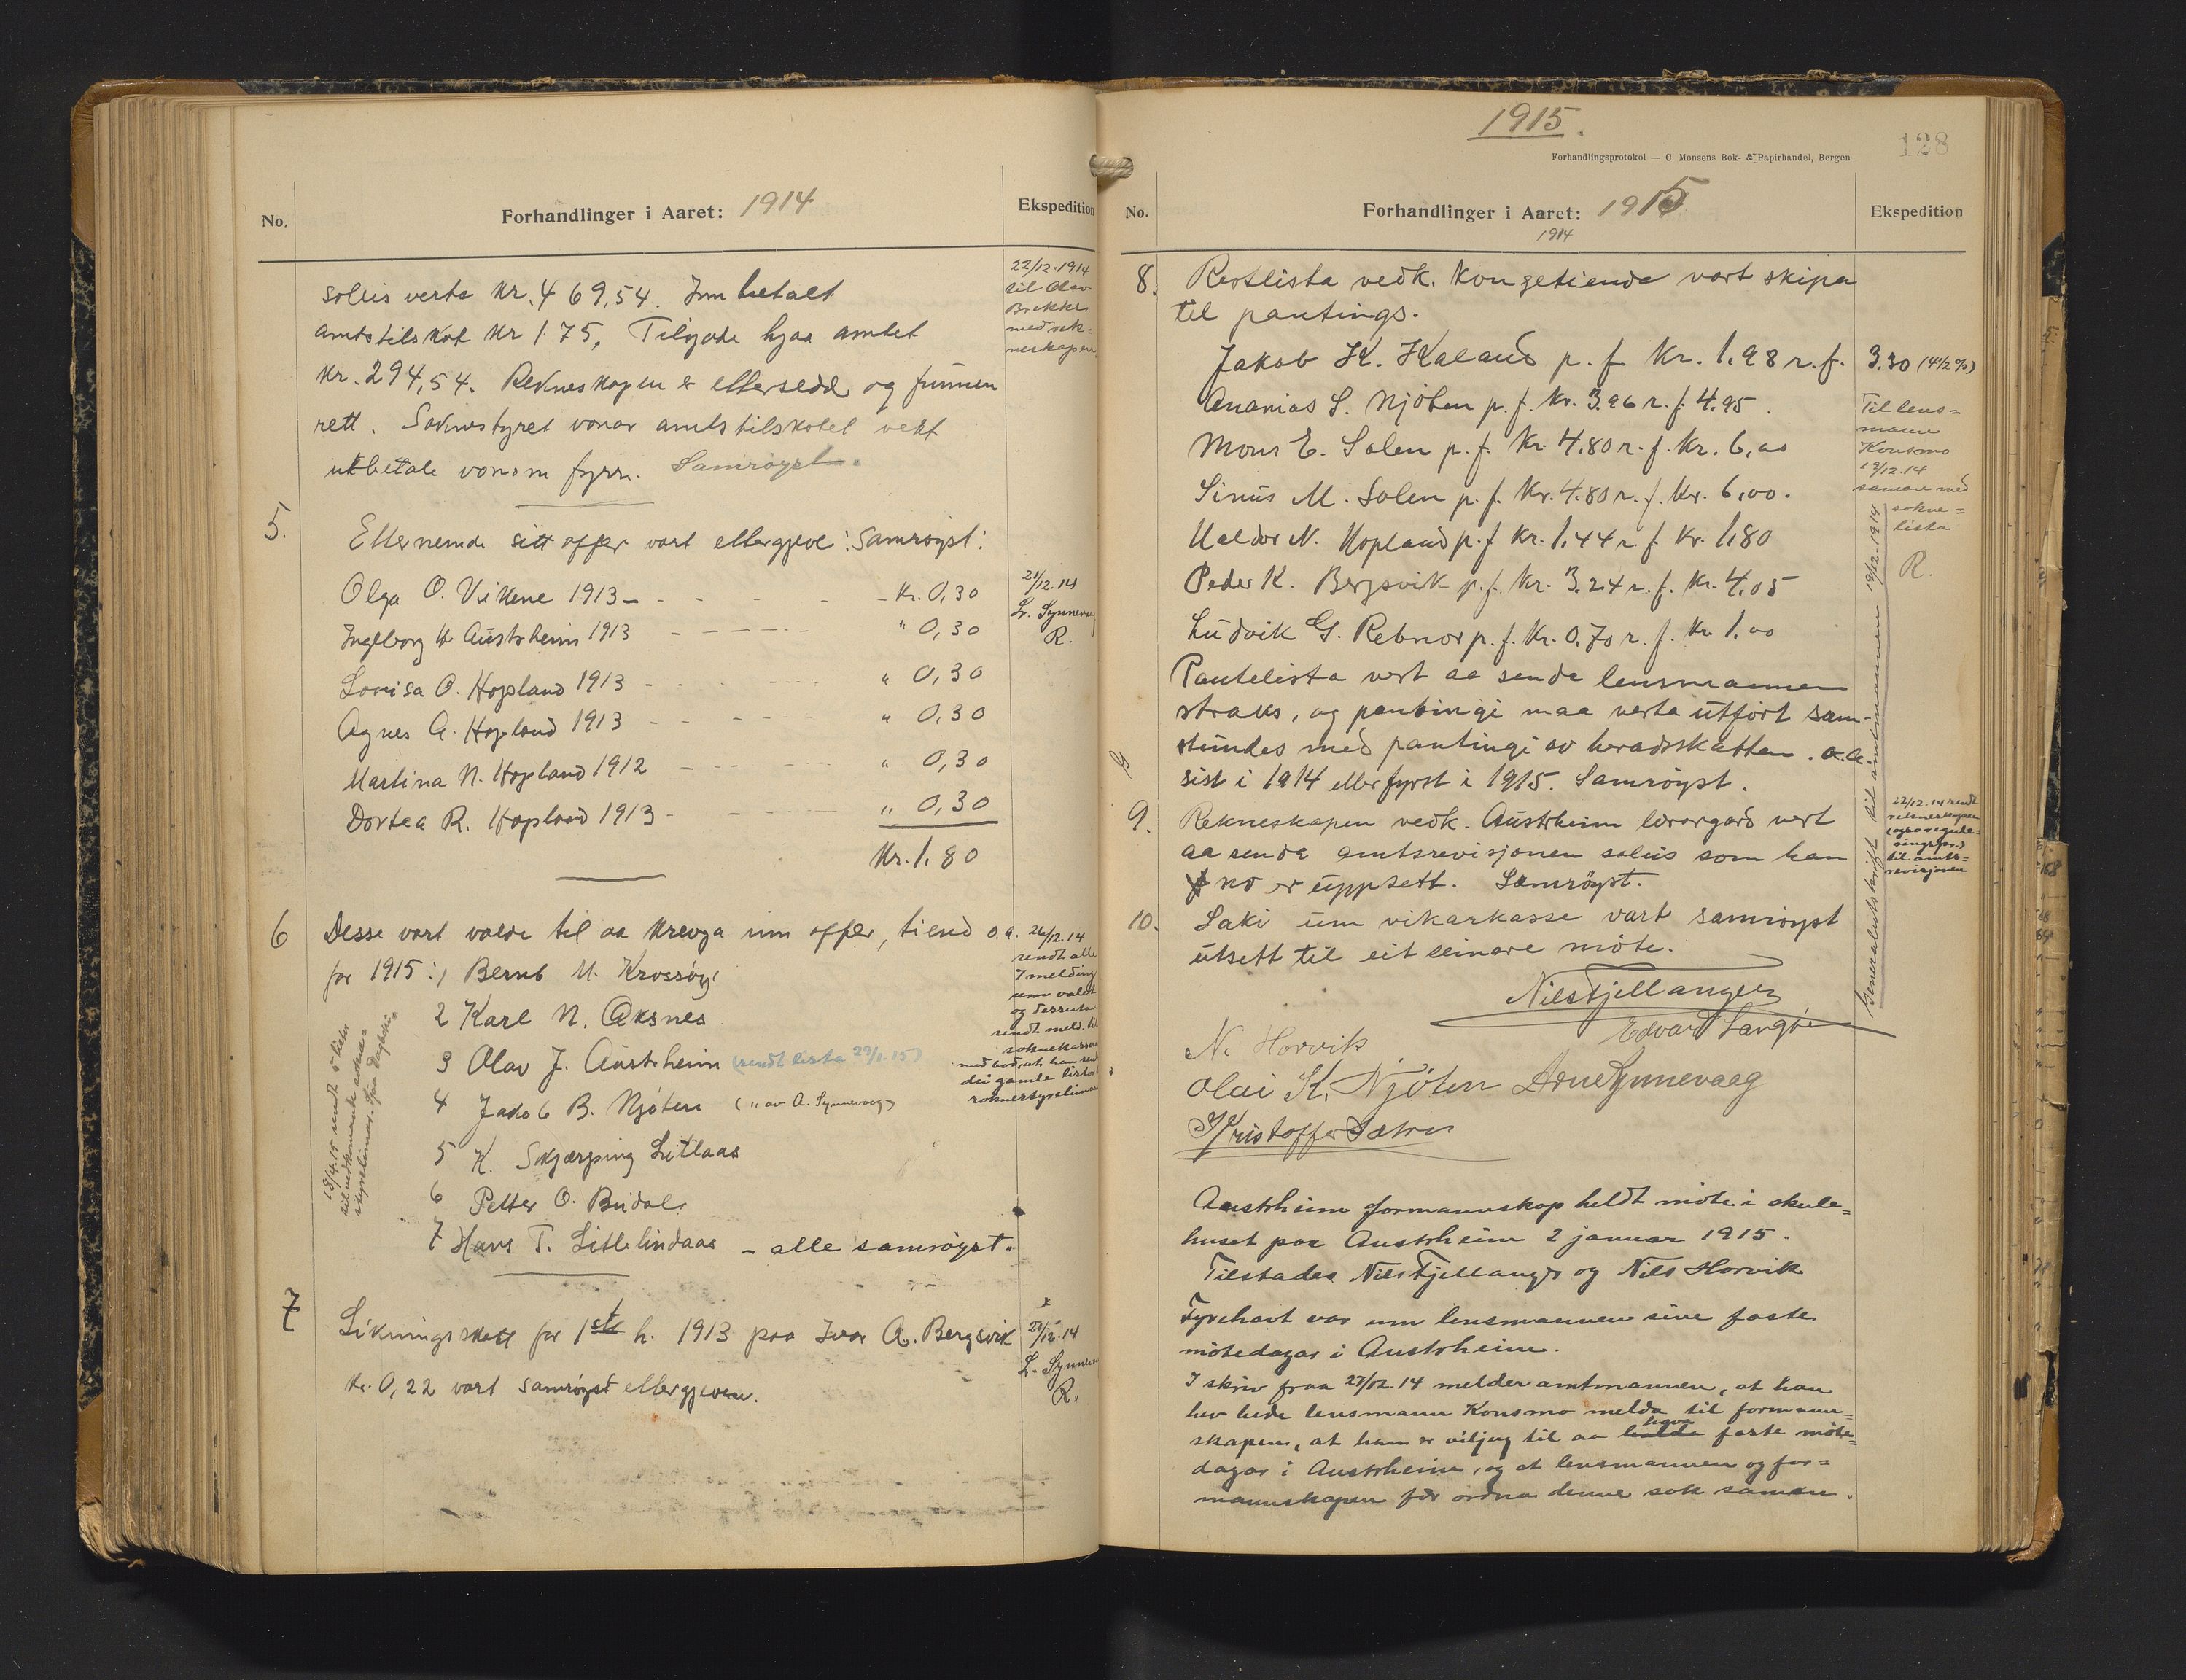 No.
Forhandlinger i Aaret: 1914
Ekspedition
soleis verta Kr. 469,54. Innbetalt
amtstilskot Kr 175, Tilgode hjaa amtet
Kr. 294,54. Rekneskapen er ettersedd og funnen
rett. Soknestyret vonar amtstilskotet vert
utbetalt som fyrr. Samrøyst.
22/12.1914
til Olav
Brekke
med rek=
neskapen
5.
Etternemde sitt offer vart ettergjeve: Samrøyst:
Olga O. Vikene 1913 - - - - - Kr. 0,30
Ingeborg Austrheim 1913 - - - - " 0,30
Lovisa O. Hopland 1913 - - - - " 0,30
Agnes A. Hopland 1913 - - - - " 0,30
Martina N. Hopland 1912 - - - - " 0,30
Dortea R. Hopland 1913 - - - - " 0,30
Kr. 1,80
21/12.14
L. Synnevaag
R.
6 Desse vart valde til aa krevja inn offer, tiend o.a.
for 1915: 1 Bernt M. Krossøy
2 Karl N. Aksnes
3 Olav J. Austrheim (sendt lista 29/1.15)
4 Jakob B. Njøten (" av A. Synnevaag)
5 K. Skjærping Litlaas
6 Petter O. Budal
7 Hans T. Litlelindaas - alle samrøyst.
26/12.14
sendt alle
7 melding
um valet
og dessutan
sendt meld. til
soknekassen
med bod, at han send
dei gamle listor
18/4.15 sendt 5 lister
7 Likningsskatt for 1ste h. 1913 paa Ivar A. Bergsvik
Kr. 0,22 vart samrøyst ettergjeven.
21/12.14
L. Synnevaag
R.
1915.
128
Forhandlingsprotokol — C. Monsens Bok- & Papirhandel, Bergen
No.
Forhandlinger i Aaret: 1915
1914
Ekspedition
8. Restlista vedk. Kongetiende vart skipa
til pantings.
Jakob K. Kaland p. f. Kr. 1.98 r. f. 3,30 (4 1/2 %)
Ananias S. Njøten p. f. Kr. 3.96 r. f. 4.95.
Mons E. Solen p. f. Kr. 4.80 r. f. Kr. 6,00
Sinus M. Solen p. f. Kr. 4.80 r. f. Kr. 6,00.
Haldor N. Hopland p. f Kr. 1,44 r. f. Kr. 1,80
Peder K. Bergsvik p. f. Kr. 3.24 r. f. Kr. 4,05
Ludvik G. Rebnor p. f. Kr. 0.70 r. f. Kr 1,00
Pantelista vert aa senda lensmannen
straks, og pantingi maa verta utført sam-
stundes med pantingi av heradskatten. o.a.
sist i 1914 eller fyrst i 1915. Samrøyst.
Til lens=
mann
Konsmo
19/12.14
saman med
sokne=
lista
R.
Generalutskrift til amtmannen 19/12.1914
9. Rekneskapen vedk. Austrheim lærargard vert
aa senda amtsrevisjonen soleis som han
no er uppsett. Samrøyst.
22/12.14 sendt
rekneskapen
til amts=
revisjonen
10. Saki um vikarkasse vart samrøyst
utsett til eit seinare møte.
Nils Fjellanger
N. Horvik
Edvard Langøe
Olai K. Njøten Arne Synnevaag
Kristoffer Sætre
Austrheim formannskap heldt møte i skule=
huset paa Austrheim 2 januar 1915.
Tilstades Nils Fjellanger og Nils Horvik
Fyrehavt var um lensmannen sine faste
møtedagar i Austrheim.
I skriv fraa 27/12.14 melder amtmannen, at han
hev bede lensmann Konsmo melda til formann=
skapen, at han er viljug til aa halda hava faste møte=
dagar i Austrheim, og at lensmannen og for=
mannskapen fær ordna denne sak saman.